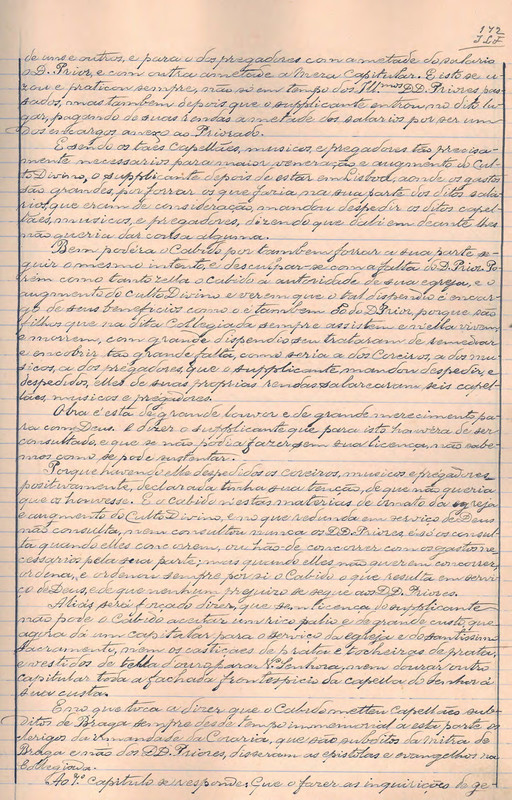 172
de uns e outros, e para o dos pregadores com a metade do salario
o D. Prior, e com outra ametade a Meza Capitular. E isto se u-
zou e praticou sempre, não só em tempo dos Ill.mos DD. Priores pas-
sados, mas tambem depois que o supplicante entrou no dito lu-
gar, pagando de suas rendas ametade dos salarios por ser um
dos encargos annexo ao Priorado.
E sendo os taes Capellães, musicos, e pregadores tão precisa-
mente necessarios para maior veneração e augmento do Cul-
to Divino, o supplicante depois de estar em Lisboa, aonde os gastos
são grandes, por forrar os que faria na sua parte dos ditos sala-
rios, que eram de consideração, mandou despedir os ditos capel-
lães, musicos, e pregadores, dizendo que dahi em deante lhes
não queria dar cousa alguma.
Bem podéra o Cabido por tambem forrar a sua parte se-
guir o mesmo intento, e desculpar-se com a falta do D. Prior. Po-
rém como tanto zella o Cabido a autoridade de sua egreja, e o
augmento do Culto Divino e verem que o tal dispendio é encar-
go de seus beneficios como o é tambem do D. Prior, porque são
filhos que na dita Collegiada sempre assistem e n'ella vivem
e morrem, com grande dispendio seu trataram de remediar
e encobrir tão grande falta, como seria a dos Coreiros, a dos mu-
sicos, a dos pregadores, que o supplicante mandou despedir, e
despedidos, elles de suas proprias rendas salarearam seis capel-
lães, musicos e pregadores.
Obra é esta de grande louvor e de grande merecimento pa-
ra com Deus. E dizer o supplicante que para isto houvera de ser
consultado, e que se não podia fazer sem sua licença, não sabe-
mos como se pode sustentar.
Porque havendo elle despedidos os coreiros, musicos e pregadores
positivamente, declarada tinha sua tenção, de que não queria
que os houvesse. E o cabido n'estas materias de ornato da egreja
e augmento do Culto Divino, e no que redunda em serviço de Deus
não consulta, nem consultou nunca os DD. Priores, e isso os consul-
ta quando elles concorrem, ou hão-de concorrer com os gastos ne-
cessarios pela sua parte; mas quando elles não querem concorrer,
ordena, e ordenou sempre por si o Cabido o que resulta em servi-
ço de Deus, e de que nenhum prejuizo se segue aos DD. Priores.
Aliás será forçado dizer, que sem licença do supplicante
não pode o Cabido acceitar um rico palio e de grande custo, que
agora dá um capitular para o serviço da egreja e do santissimo
sacramento, nem os castiçaes de prata e tocheiros de prata,
e vestidos de tehla d'ouro para N. Senhora, nem dourar outro
capitular toda a fachada e frontespicio da capella do Senhor á
sua custa.
E no que toca a dizer que o Cabido metteu Capellães sub-
ditos de Braga sempre desde tempo immemorial a esta parte os
clerigos da irmandade da Coraria, que são subditos da mitra de
Braga e não dos DD. Priores, disseram as epistolas e evangelhos na
Collegiada.
Ao 4.º Capitulo se responde: Que o fazer as inquirições de ge-